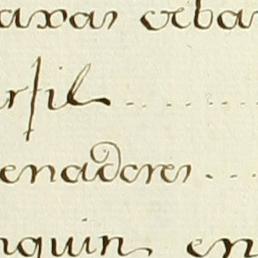 axas ceba
rfil
enadores
nquin en